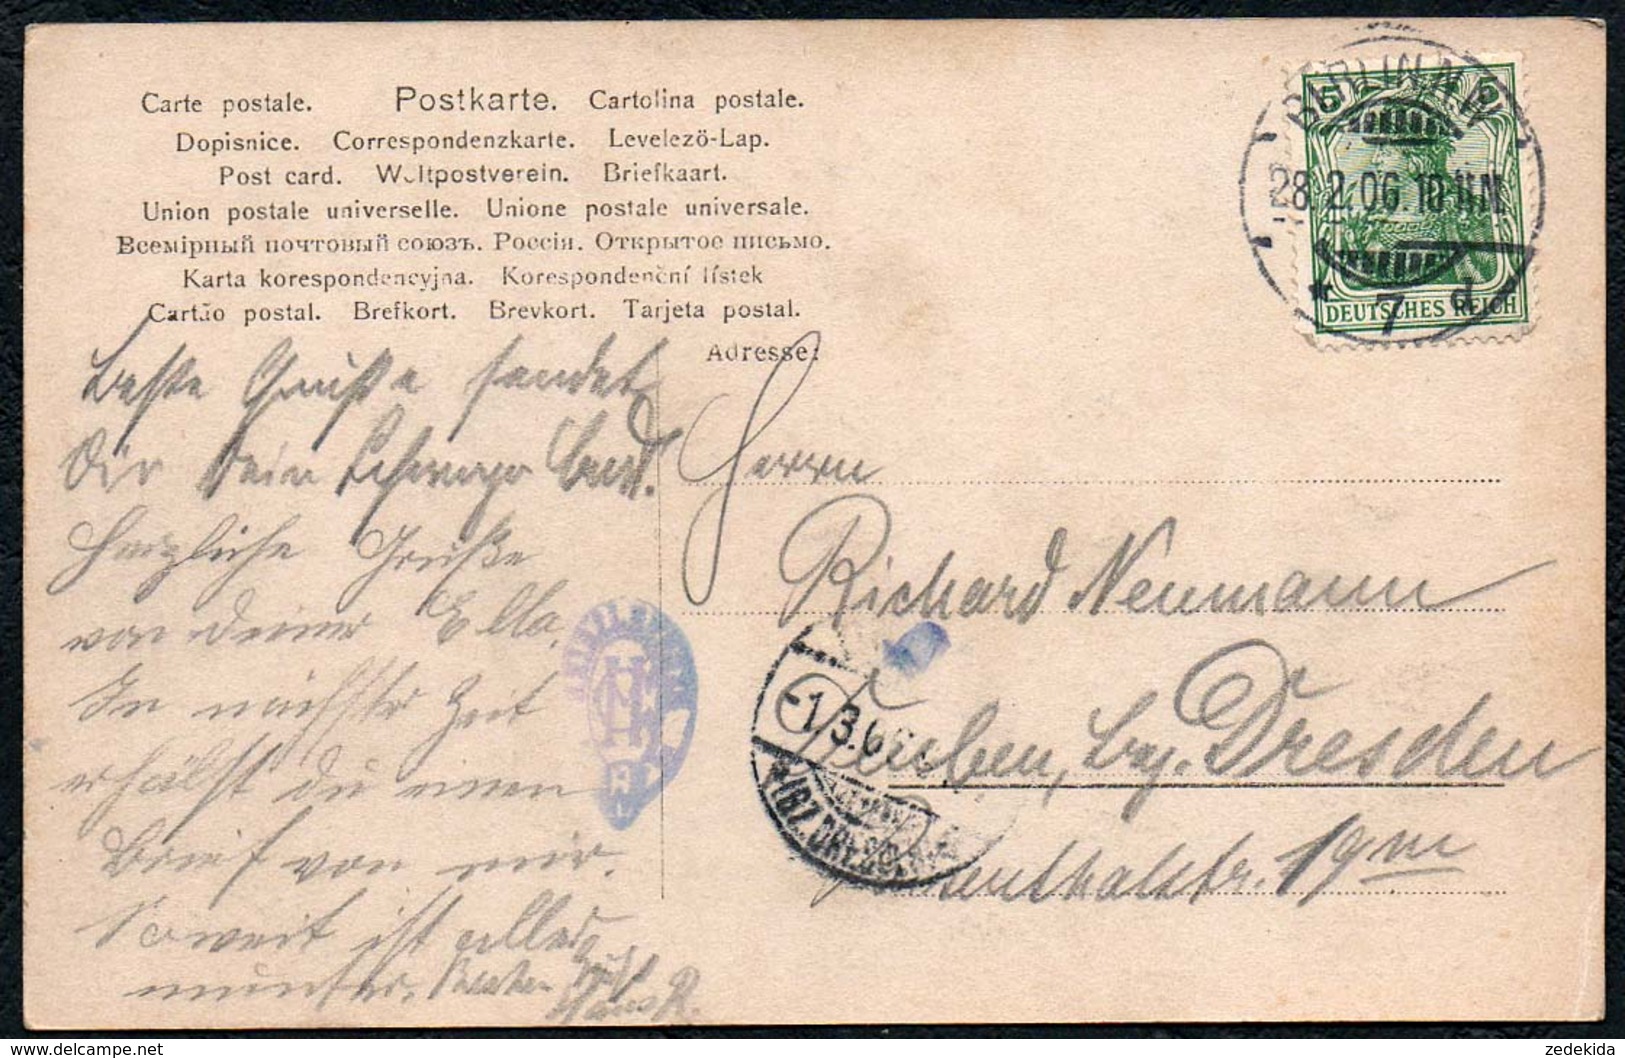 Carte postale. Postkarte. Cartolina postale.
Dopisnice. Correspondenzkarte. Levelező-Lap.
Post card. Weltpostverein. Briefkaart.
Union postale universelle. Unione postale universale.
Всемірный почтовый союзъ. Россія. Открытое письмо.
Karta korespondencyjna. Korespondenční lístek
Cartão postal. Brefkort. Brevkort. Tarjeta postal.
Adresse:
BERLIN N.W.
28.2.06.10-11N.
* 7 d
5 5
DEUTSCHES REICH
Beste Grüße sendet
Dir Dein Schwager
Herzliche Grüße
von deiner Ella.
In nächster Zeit
erhälst du einen
Brief von mir.
Soweit ist alles
munter. Besten Gruß
Hans R.
Herrn
Richard Neumann
Leuben, bez. Dresden
19 III
-1/3.6
(BZ. DRESDEN)
zedekida